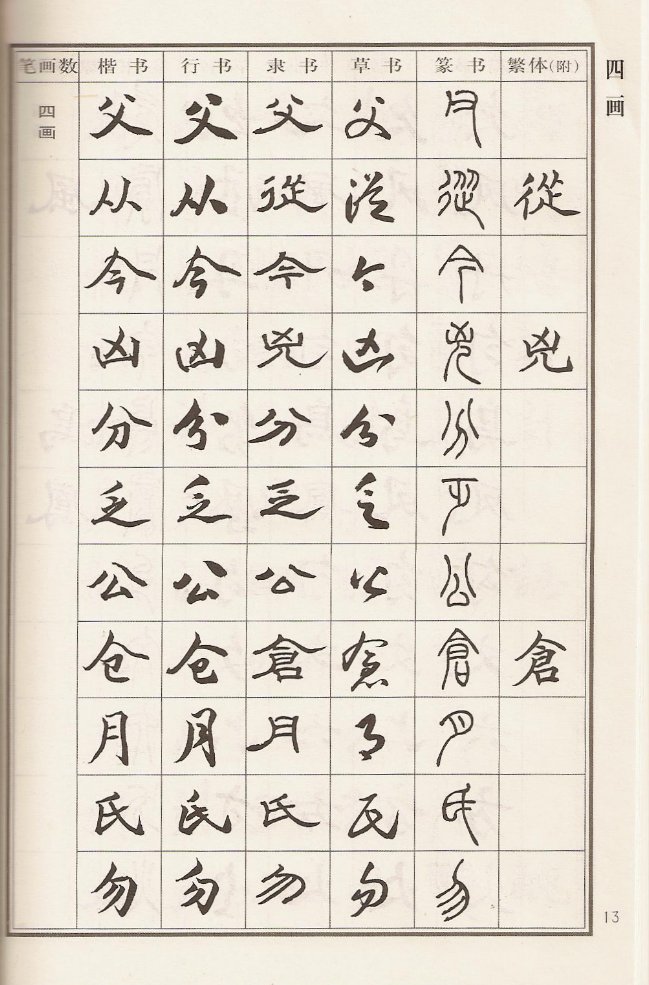 四画
笔画数 楷书 行书 隶书 草书 篆书 繁体(附)
四画 父 父 父 父 父
从 从 從 從 從 從
今 今 今 今 今
凶 凶 兇 凶 兇 兇
分 分 分 分 分
乏 乏 乏 乏 乏
公 公 公 公 公
仓 仓 倉 倉 倉 倉
月 月 月 月 月
氏 氏 氏 氏 氏
勿 勿 勿 勿 勿
13